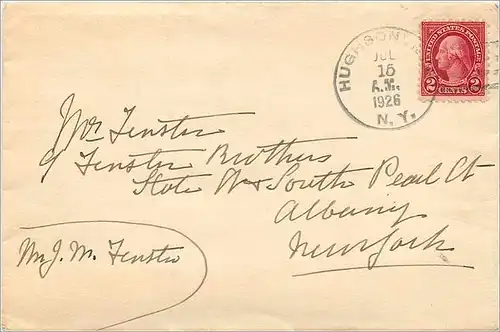 HUGHSONV
JUL
15
A.M.
1926
N. Y.
UNITED STATES POSTAGE
2 CENTS 2
Mr Fenster
Fenster Brothers
State & South Pearl St
Albany
New York
Mr J. M. Fenster